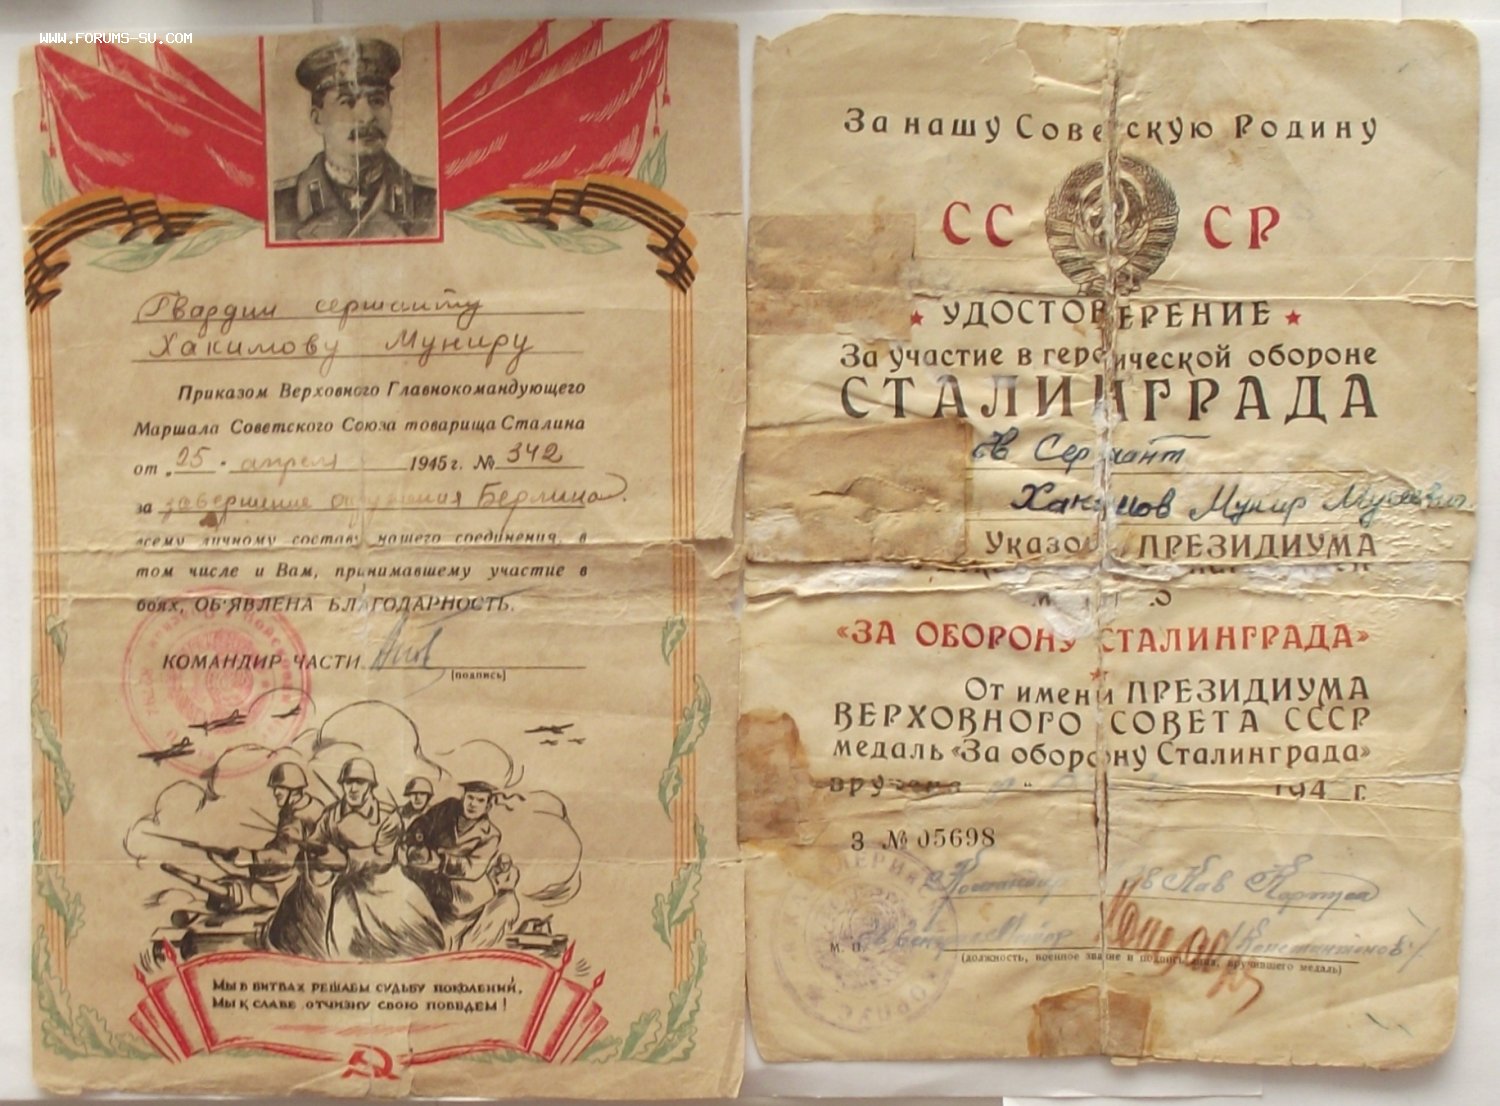 WWW.FORUMS-SU.COM
Гвардии сержанту
Хакимову Муниру
Приказом Верховного Главнокомандующего
Маршала Советского Союза товарища Сталина
от „25" апреля 1945 г. № 342
за завершение окружения Берлина
всему личному составу нашего соединения, в
том числе и Вам, принимавшему участие в
боях, ОБ'ЯВЛЕНА БЛАГОДАРНОСТЬ.
КОМАНДИР ЧАСТИ
(подпись)
МЫ В БИТВАХ РЕШАЕМ СУДЬБУ ПОКОЛЕНИЙ,
МЫ К СЛАВЕ ОТЧИЗНУ СВОЮ ПОВЕДЕМ!
За нашу Советскую Родину
СС СР
УДОСТОВЕРЕНИЕ
За участие в героической обороне
СТАЛИНГРАДА
Гв Сержант
Хакимов Мунир
Указом ПРЕЗИДИУМА
«ЗА ОБОРОНУ СТАЛИНГРАДА»
От имени ПРЕЗИДИУМА
ВЕРХОВНОГО СОВЕТА СССР
медаль «За оборону Сталинграда»
вручена 194 г.
З № 05698
Командир Гв Кав Корпуса
М. П. Гв Генерал Майор /Константинов/
(должность, военное звание и подпись лица, вручившего медаль)